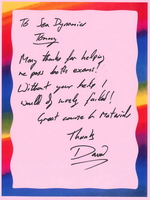 To Sea Dynamics
Many thanks for helping
me pass both exams!
Without your help I
would of surely failed!
Great course & materials
Thanks
David